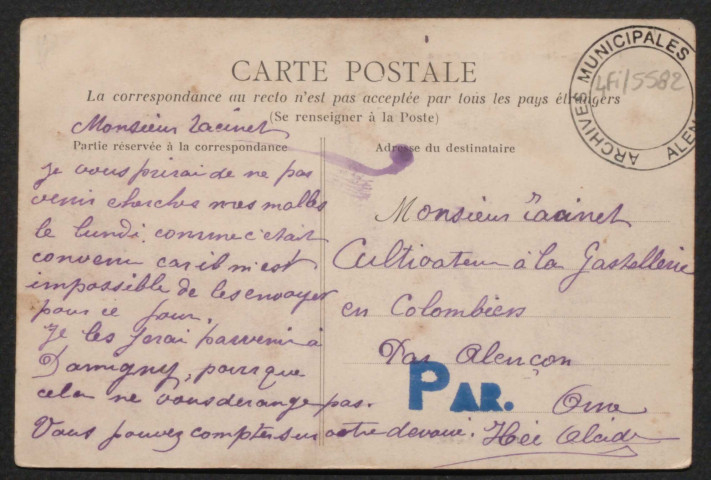 CARTE POSTALE
La correspondance au recto n'est pas acceptée par tous les pays étrangers
(Se renseigner à la Poste)
Partie réservée à la correspondance
Adresse du destinataire
ARCHIVES MUNICIPALES ALEN
4Fi/5582
Monsieur Tacinet
Je vous prirai de ne pas
venir chercher mes malles
le lundi comme c'était
convenu car il m'est
impossible de les envoyer
pour ce jour.
Je les ferai parvenir à
Damigny, pour que
cela ne vous derange pas.
Vous pouvez compter sur votre devoué.
Monsieur Tacinet
Cultivateur à la Gastellerie
en Colombiers
Par Alençon
Orne
PAR.